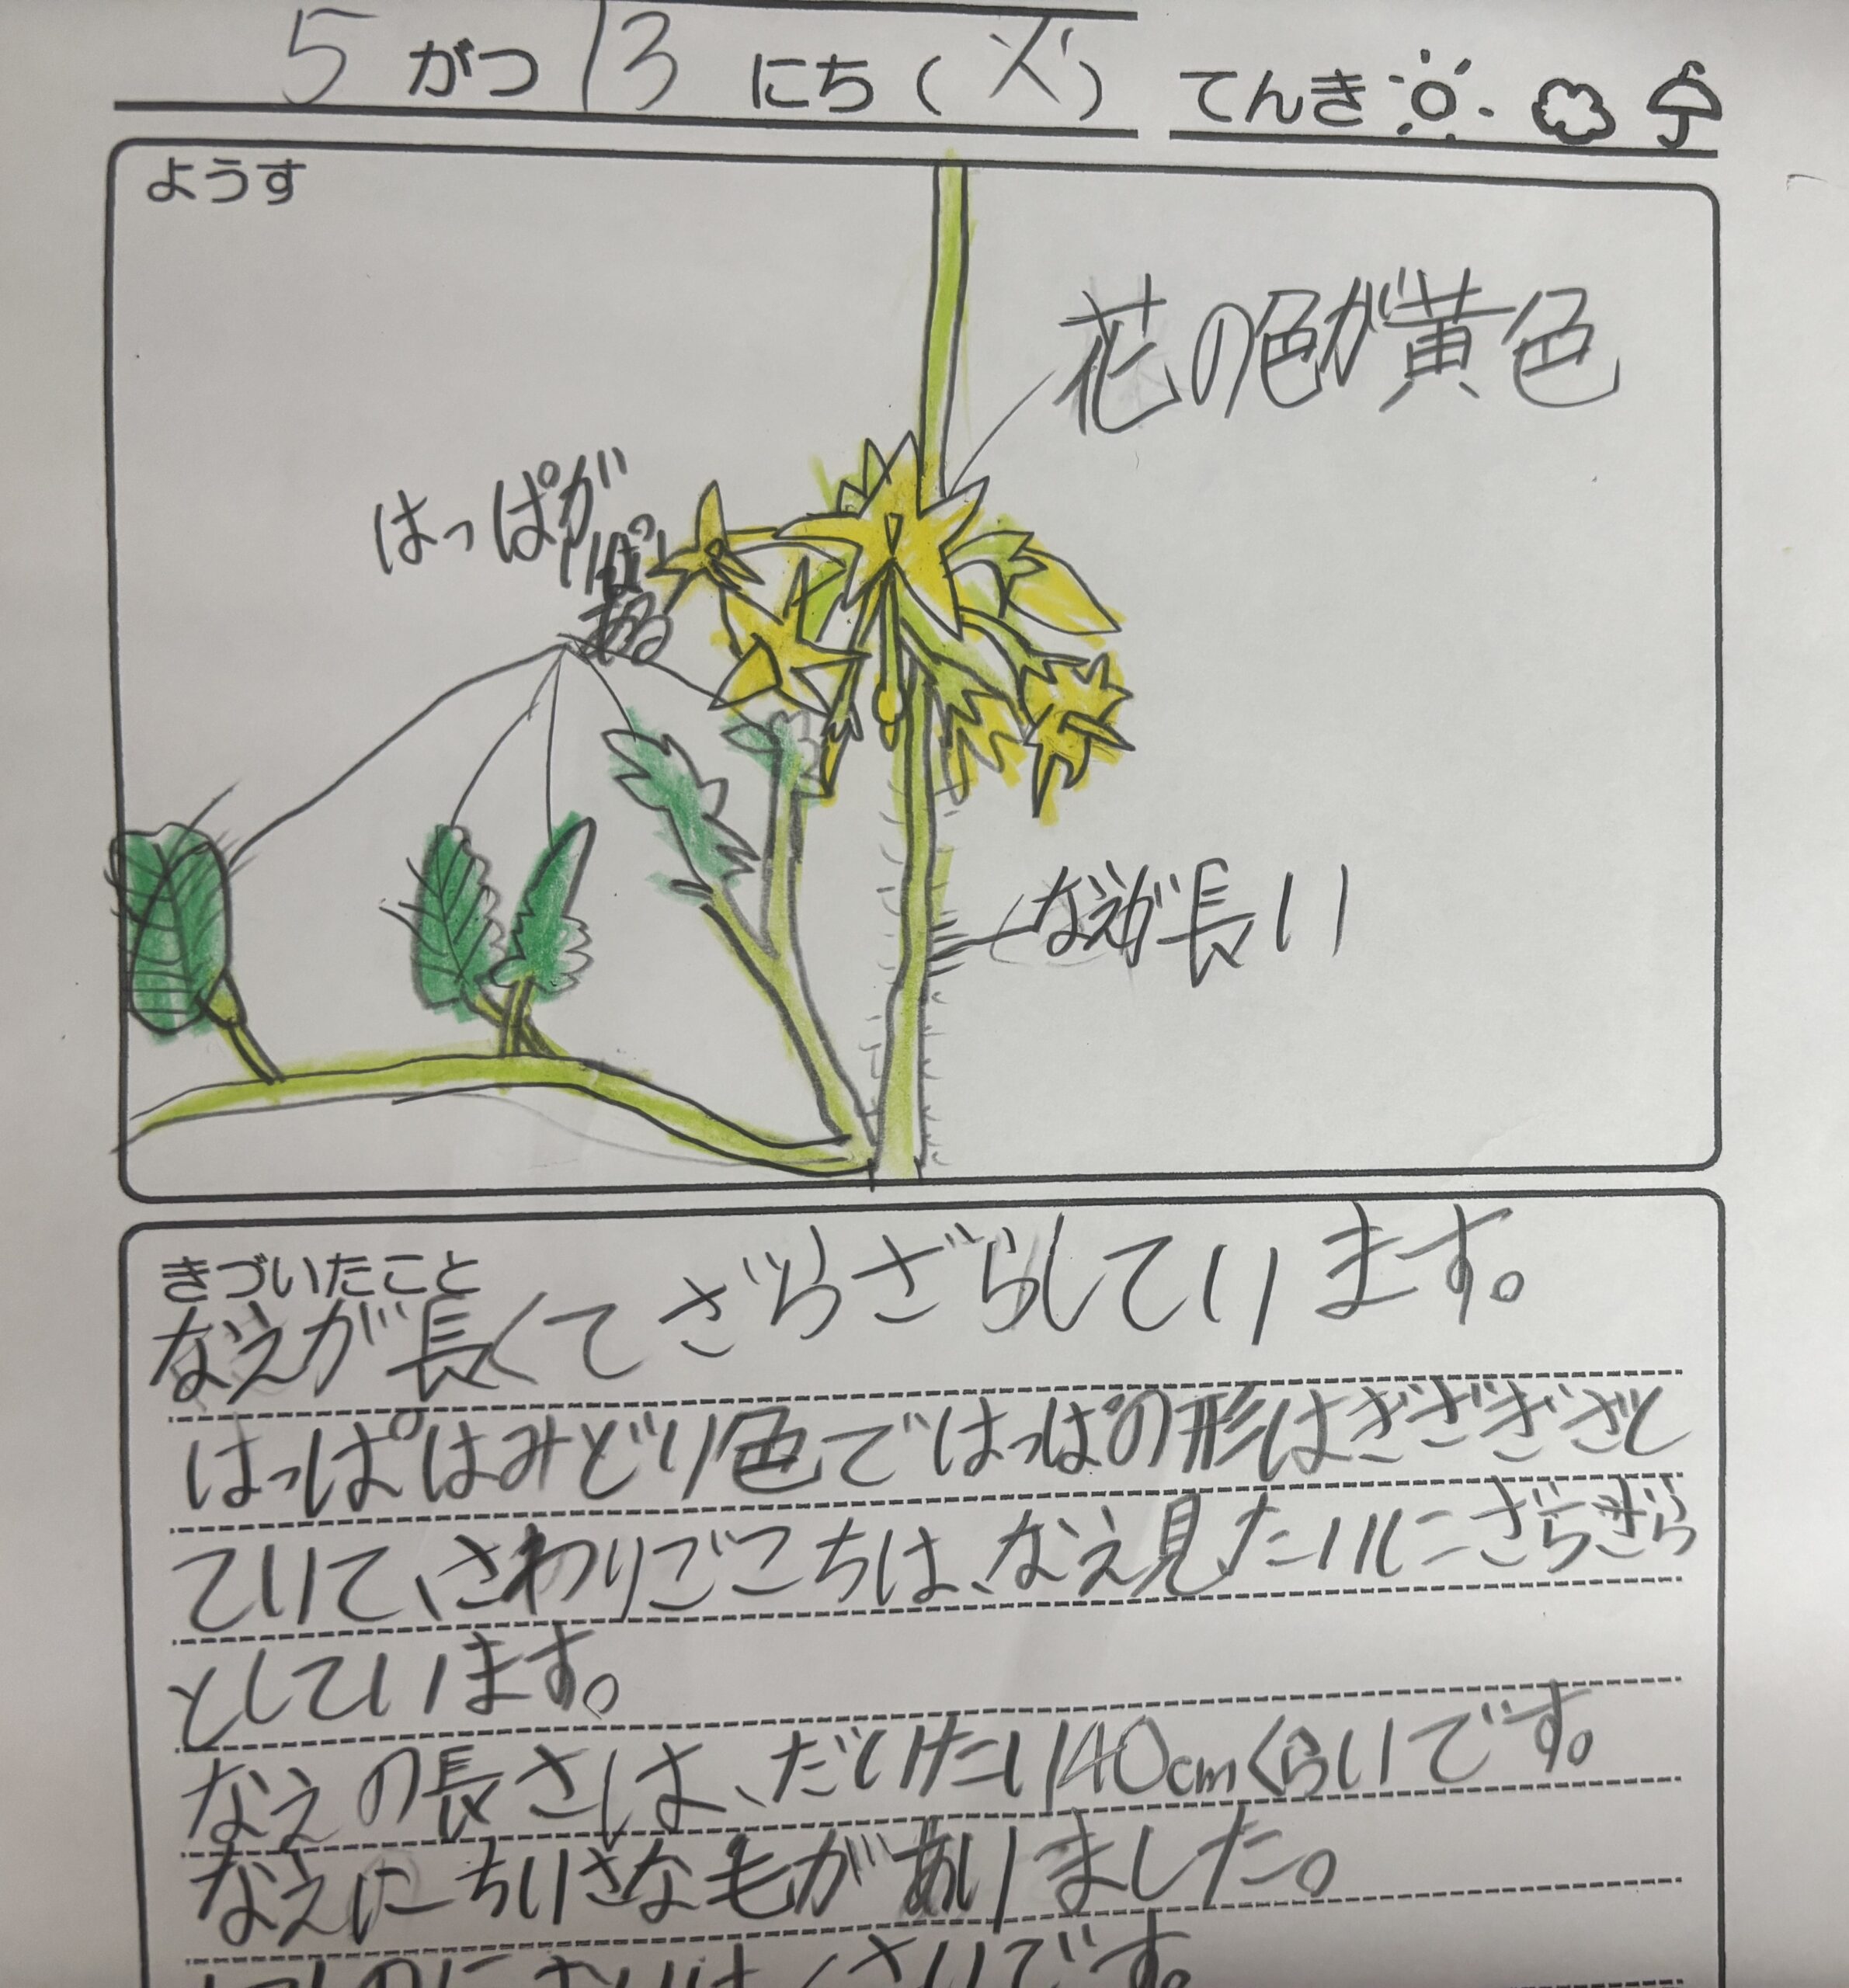 5がつ13にち(火) てんき
ようす
花の色が黄色
はっぱが
ある
なえが長い
きづいたこと
なえが長くてざらざらしています。
はっぱはみどり色ではっぱの形はぎざぎざし
ていて、さわりごこちは、なえ見たいにざらざら
としています。
なえの長さは、だいたい140cmくらいです。
なえにちいさな毛がありました。